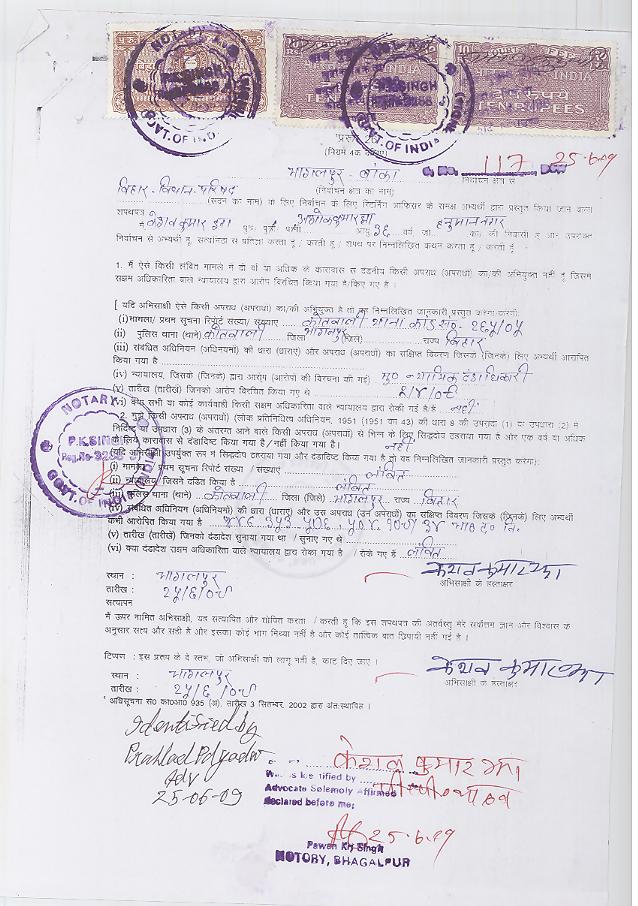 NOTARY P.K.SINGH GOVT.OF INDIA
INDIA COURT FEE
TEN RUPEES
(नियम 4क देखिए)
भागलपुर - बांका निर्वाचन क्षेत्र से
No. 117 25-6-09
बिहार - विधान परिषद (निर्वाचन क्षेत्र का नाम)
(सदन का नाम) के लिए निर्वाचन के लिए रिटर्निंग आफिसर के समक्ष अभ्यर्थी द्वारा प्रस्तुत किया जाने वाला
शपथपत्र
केशव कुमार झा पुत्र/पुत्री/पत्नी अशोक कुमार झा आयु ३६ वर्ष, जो हनुमान नगर का/की निवासी हूं और उपरोक्त
निर्वाचन से अभ्यर्थी हूं, सत्यनिष्ठा से प्रतिज्ञा करता हूं / करती हूं / शपथ पर निम्नलिखित कथन करता हूं / करती हूं :-
1. मैं ऐसे किसी लंबित मामले में दो वर्ष या अधिक के कारावास से दंडनीय किसी अपराध (अपराधों) का/की अभियुक्त नहीं हूं जिसमें
सक्षम अधिकारिता वाले न्यायालय द्वारा आरोप विरचित किया गया है/किए गए है ।
[ यदि अभिसाक्षी ऐसे किसी अपराध (अपराधों) का/की अभियुक्त है तो वह निम्नलिखित जानकारी प्रस्तुत करेगा/करेगी
(i) मामला/ प्रथम सूचना रिपोर्ट संख्या/ संख्याएं कोतवाली थाना कांड सं०-
(ii) पुलिस थाना (थाने) कोतवाली जिला (जिले) भागलपुर राज्य बिहार
(iii) संबंधित अधिनियम (अधिनियमों) की धारा (धाराएं) और अपराध (अपराधों) का संक्षिप्त विवरण जिसके (जिनके) लिए अभ्यर्थी आरोपित
किया गया है
(iv) न्यायालय, जिसके (जिनके) द्वारा आरोप (आरोपों की विरचना की गई) मु० न्यायिक दंडाधिकारी
(v) तारीख (तारीखें) जिनको आरोप विरचित किए गए थे
(vi) क्या सभी या कोई कार्यवाही किसी सक्षम अधिकारिता वाले न्यायालय द्वारा रोकी गई है/हैं नहीं
2. मुझे किसी अपराध (अपराधों) (लोक प्रतिनिधित्व अधिनियम, 1951 (1951 का 43) की धारा 8 की उपधारा (1) या उपधारा (2) में
निर्दिष्ट या उपधारा (3) के अंतरगत आने वाले किसी अपराध (अपराधों) से भिन्न के लिए सिद्धदोष ठहराया गया है और एक वर्ष या अधिक
के लिए कारावास से दंडादिष्ट किया गया है/नहीं किया गया है । नहीं
(यदि अभिसाक्षी उपर्युक्त रूप में सिद्धदोष ठहराया गया और दंडादिष्ट किया गया है तो वह निम्नलिखित जानकारी प्रस्तुत करेगा):
(i) मामला / प्रथम सूचना रिपोर्ट संख्या / संख्याएं लंबित
(ii) न्यायालय जिसने दंडित किया है लंबित
(iii) पुलिस थाना (थाने) कोतवाली जिला (जिले) भागलपुर राज्य बिहार
(iv) संबंधित अधिनियम (अधिनियमों) की धारा (धाराएं) और उस अपराध (उन अपराधों) का संक्षिप्त विवरण जिसके (जिनके) लिए अभ्यर्थी
कभी आरोपित किया गया है
(v) तारीख (तारीखें) जिनको दंडादेश सुनाया गया था / सुनाए गए थे
(vi) क्या दंडादेश सक्षम अधिकारिता वाले न्यायालय द्वारा रोका गया है / रोके गए हैं लंबित
स्थान : भागलपुर
केशव कुमार झा
तारीख : अभिसाक्षी के हस्ताक्षर
सत्यापन
मैं ऊपर नामित अभिसाक्षी, यह सत्यापित और घोषित करता / करती हूं कि इस शपथपत्र की अंतर्वस्तु मेरे सर्वोत्तम ज्ञान और विश्वास के
अनुसार सत्य और सही है और इसका कोई भाग मिथ्या नहीं है और कोई तात्विक बात छिपायी नहीं गई है ।
टिप्पण : इस प्ररूप के वे स्तंभ, जो अभिसाक्षी को लागू नहीं है, काट दिए जाए ।
केशव कुमार झा
स्थान : भागलपुर अभिसाक्षी के हस्ताक्षर
तारीख :
अधिसूचना सं० का०आ० 935 (अ), तारीख 3 सितम्बर, 2002 द्वारा अंतःस्थापित ।
Identified by
Prahlad Pd yadav
Adv
25-06-09
केशव कुमार झा
Who is identified by
Advocate Solemnly Affirmed
declared before me;
25-6-09
Pawan Kr. Singh
NOTORY, BHAGALPUR
NOTARY P.K.SINGH Reg.No-3268 GOVT.OF INDIA